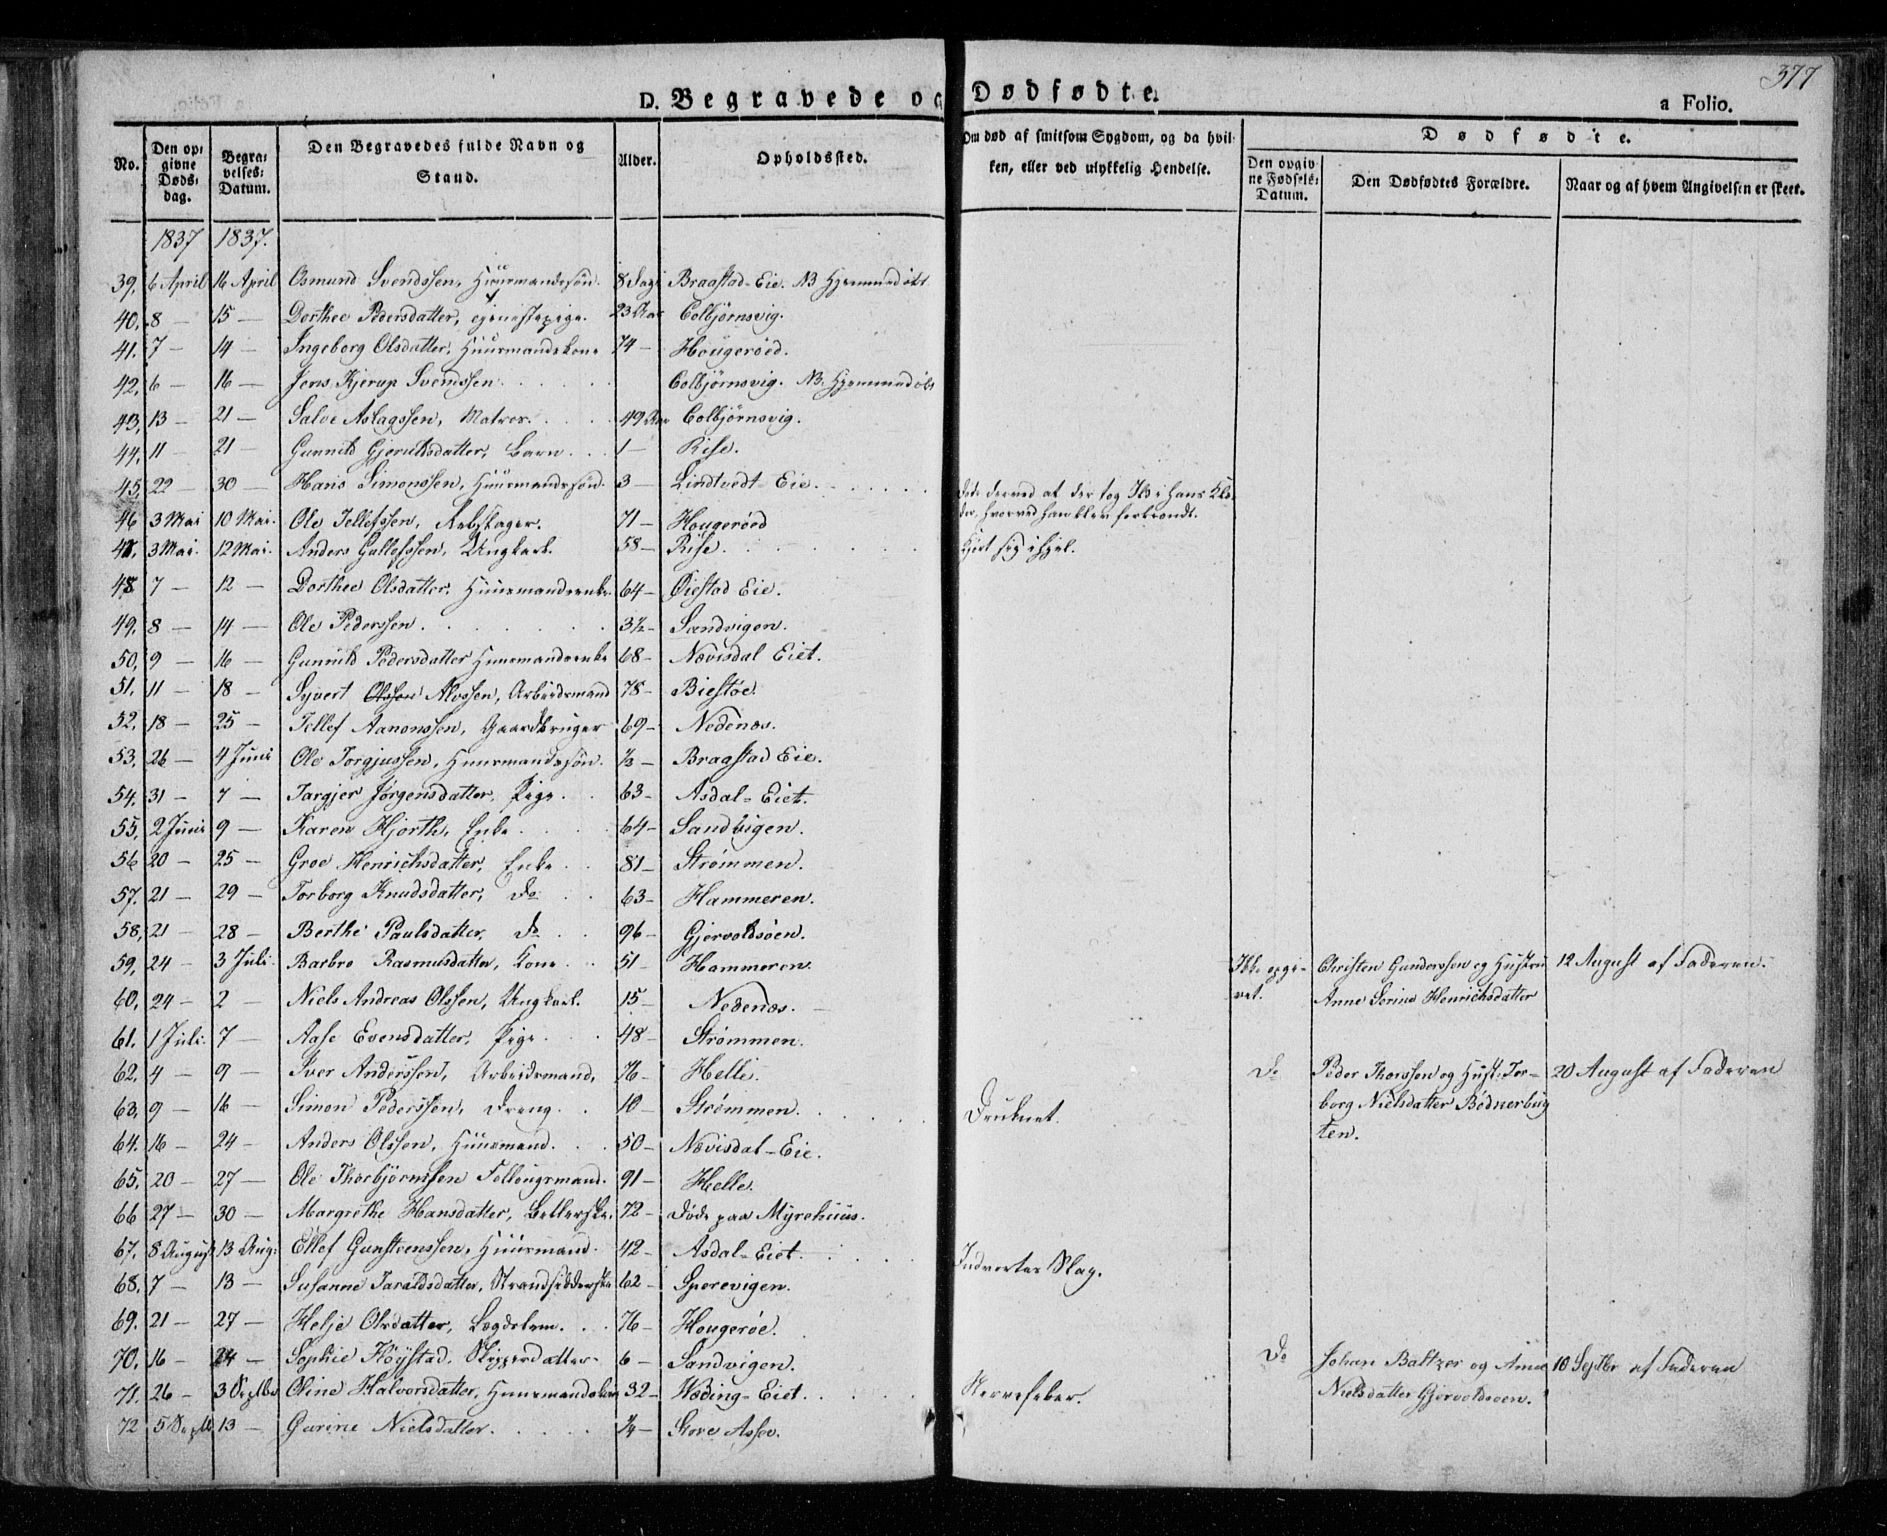 377
D. Begravede og Dødfødte.
a Folio.
No.
Den op=
givne
Døds=
dag.
Begra=
velses=
Datum.
Den Begravedes fulde Navn og
Stand.
Alder.
Opholdssted.
Om død af smitsom Sygdom, og da hvil=
ken, eller ved ulykkelig Hendelse.
Dødfødte.
Den opgiv=
ne Fødsels=
Datum.
Den Dødfødtes Forældre.
Naar og af hvem Angivelsen er skeet.
1837 1837.
39, 6 April 16 April Osmund Svendssen, Huusmandssøn. 8 Dage Bragstad-Eie. NB Hjemmedøbt
40, 8 — 15 — Dorthee Pedersdatter, tjenestepige. 23 Aar Colbjørnsvig.
41, 7 — 14 — Ingeborg Olsdatter, Huusmandskone 74 — Hougerøed.
42, 6 — 16 — Jens Kjerup Svendssen Colbjørnsvig. NB. Hjemmedøbt
43, 13 — 21 — Salve Aslagssen, Matros. 49 Aar Colbjørnsvig.
44, 11 — 21 — Gunnild Gjerulfsdatter, Barn 1 — Rise.
45, 22 — 30 — Hans Simonssen, Huusmandssøn 3 — Lindtvedt Eie. Døde derved at der tog Ild i hans Klæ-
der, hvorved han blev forbrændt.
46 3 Mai 10 Mai. Ole Tellefssen, Aabstager. 71 — Hougerøed
47, 3 Mai. 12 Mai. Anders Gullefssen, Ungkarl. 58 — Rise. skjøt sig ihjel.
48 7 — 12 — Dorthee Olsdatter, Huusmandsenke 64 — Øiestad Eie.
49, 8 — 14 — Ole Pederssen. 3½ — Sandvigen.
50, 9 — 16 — Gunnild Pedersdatter Huusmandsenke 68 — Nævisdal Eiet.
51, 11 — 18 — Syvert Olssen Alvssen, Arbeidsmand 78 — Biestøe.
52, 18 — 25 — Tellef Aanonssen, Gaardbruger 69 — Nedenæs.
53, 26 — 4 Juni Ole Torgjussen, Huusmandssøn. ½ — Bragstad Eie.
54, 31 — 7 — Targjer Jørgensdatter, Pige. 63 — Asdal-Eiet.
55, 2 Juni 9 — Karen Hjorth, Enke 64 — Sandvigen.
56 20 — 25 — Groe Henrichsdatter, Enke 81 — Strømmen.
57. 21 — 29 — Torborg Knudsdatter, Do 63 — Hammeren.
58, 21 — 28 — Berthe Paulsdatter, Do 96 — Gjervoldsøen.
59, 24 — 3 Juli. Barbro Rasmusdatter, Kone 51 — Hammeren. Ikke opgi-
vet. Christen Gunderssen og Hustru 12 August af Faderen.
Anne Serine Henrichsdatter
60, 24 — 2 — Niels Andreas Olssen, Ungkarl. 15 — Nedenæs.
61. 1 Juli. 7 — Aase Evensdatter, Pige. 48 — Strømmen.
62, 4 — 9 — Iver Anderssen, Arbeidsmand, 76 — Helle. Do Peder Thorssen og Hust: Tor- 20 August af Faderen
borg Nielsdatter Bødkerbug
ten.
63, 9 — 16 — Simon Pederssen, Dreng. 10 — Strømmen. Druknet.
64. 16 — 24 — Anders Olssen, Huusmand. 50 — Nævisdal-Eie.
65, 20 — 27 — Ole Thorbjørnssen Follougsmand. 91 — Helle.
66 27 — 30 — Margrethe Hansdatter, Betlerske. 72 — døde paa Myrehuus.
67, 8 August 13 Aug: Ellef Gunstenssen, Huusmand. 42 — Asdal-Eiet. Indvortes Slag.
68. 7 — 13 — Susanne Taraldsdatter, Strandsidderske 62 — Sporevigen.
69. 21 — 27 — Helje Olsdatter, Lægdslem. 76 — Hougerøe.
70, 16 — 24 — Sophie Høystad, Skipperdatter. 6 — Sandvigen. Do Johan Baltzer og Anne 10 Septbr af Faderen
Nielsdatter Gjervoldsøen.
71. 26 — 3 Septbr Oline Halvorsdatter, Huusmandskone 32 — Wæding-Eiet. Nervefeber.
72 5 Septb 13 — Gurine Nielsdatter. ¼ — Store Assev.